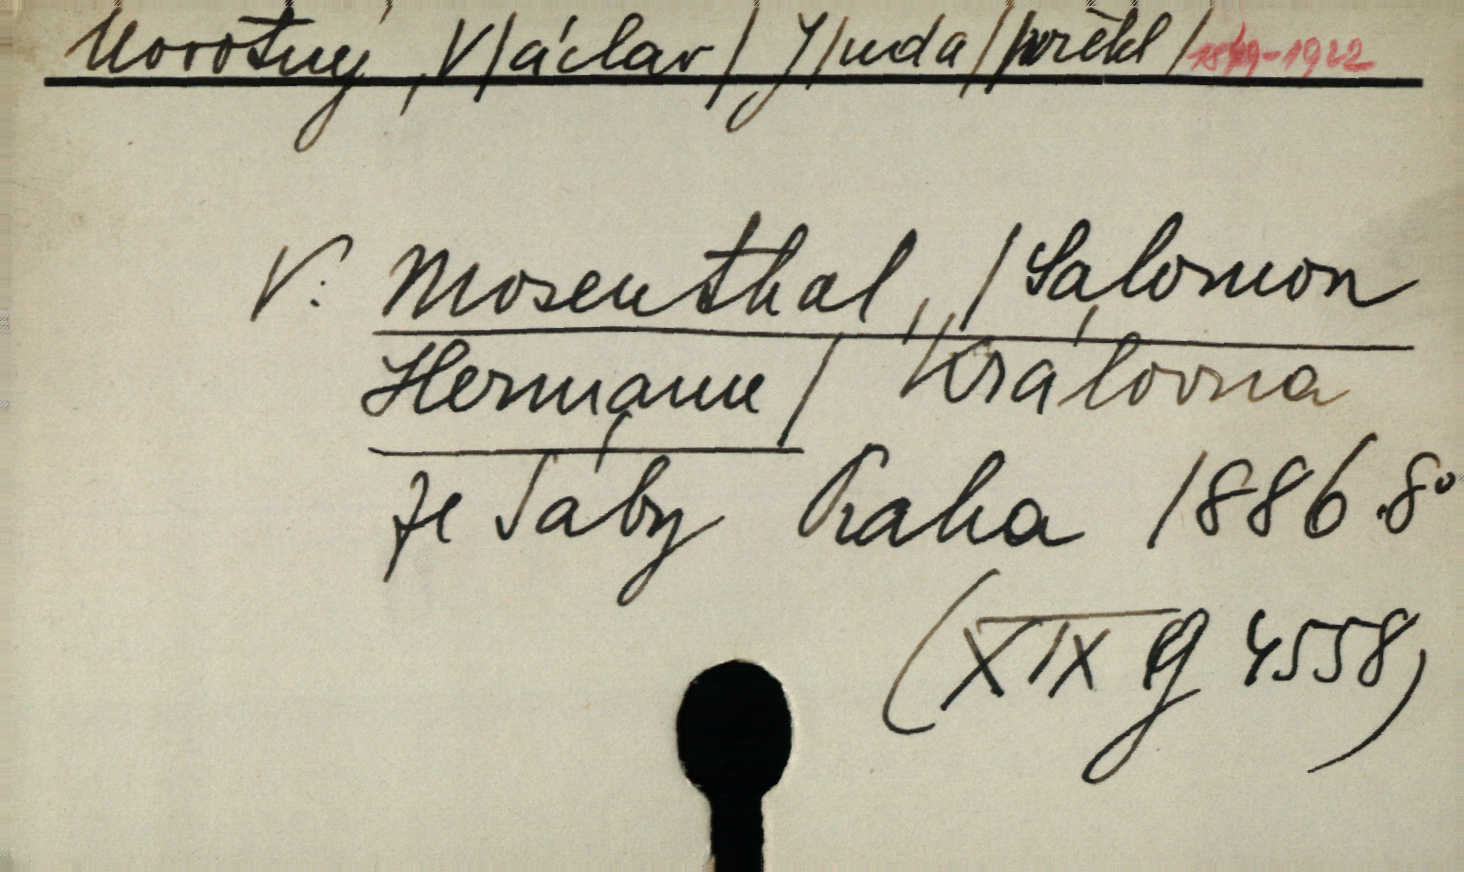 Novotný, V/áclav/ J/uda/ /překl/ 1849-1922
V: Mosenthal, /Salomon
Hermann/ Královna
ze Sáby Praha 1886.8°
(XIX G 4558)